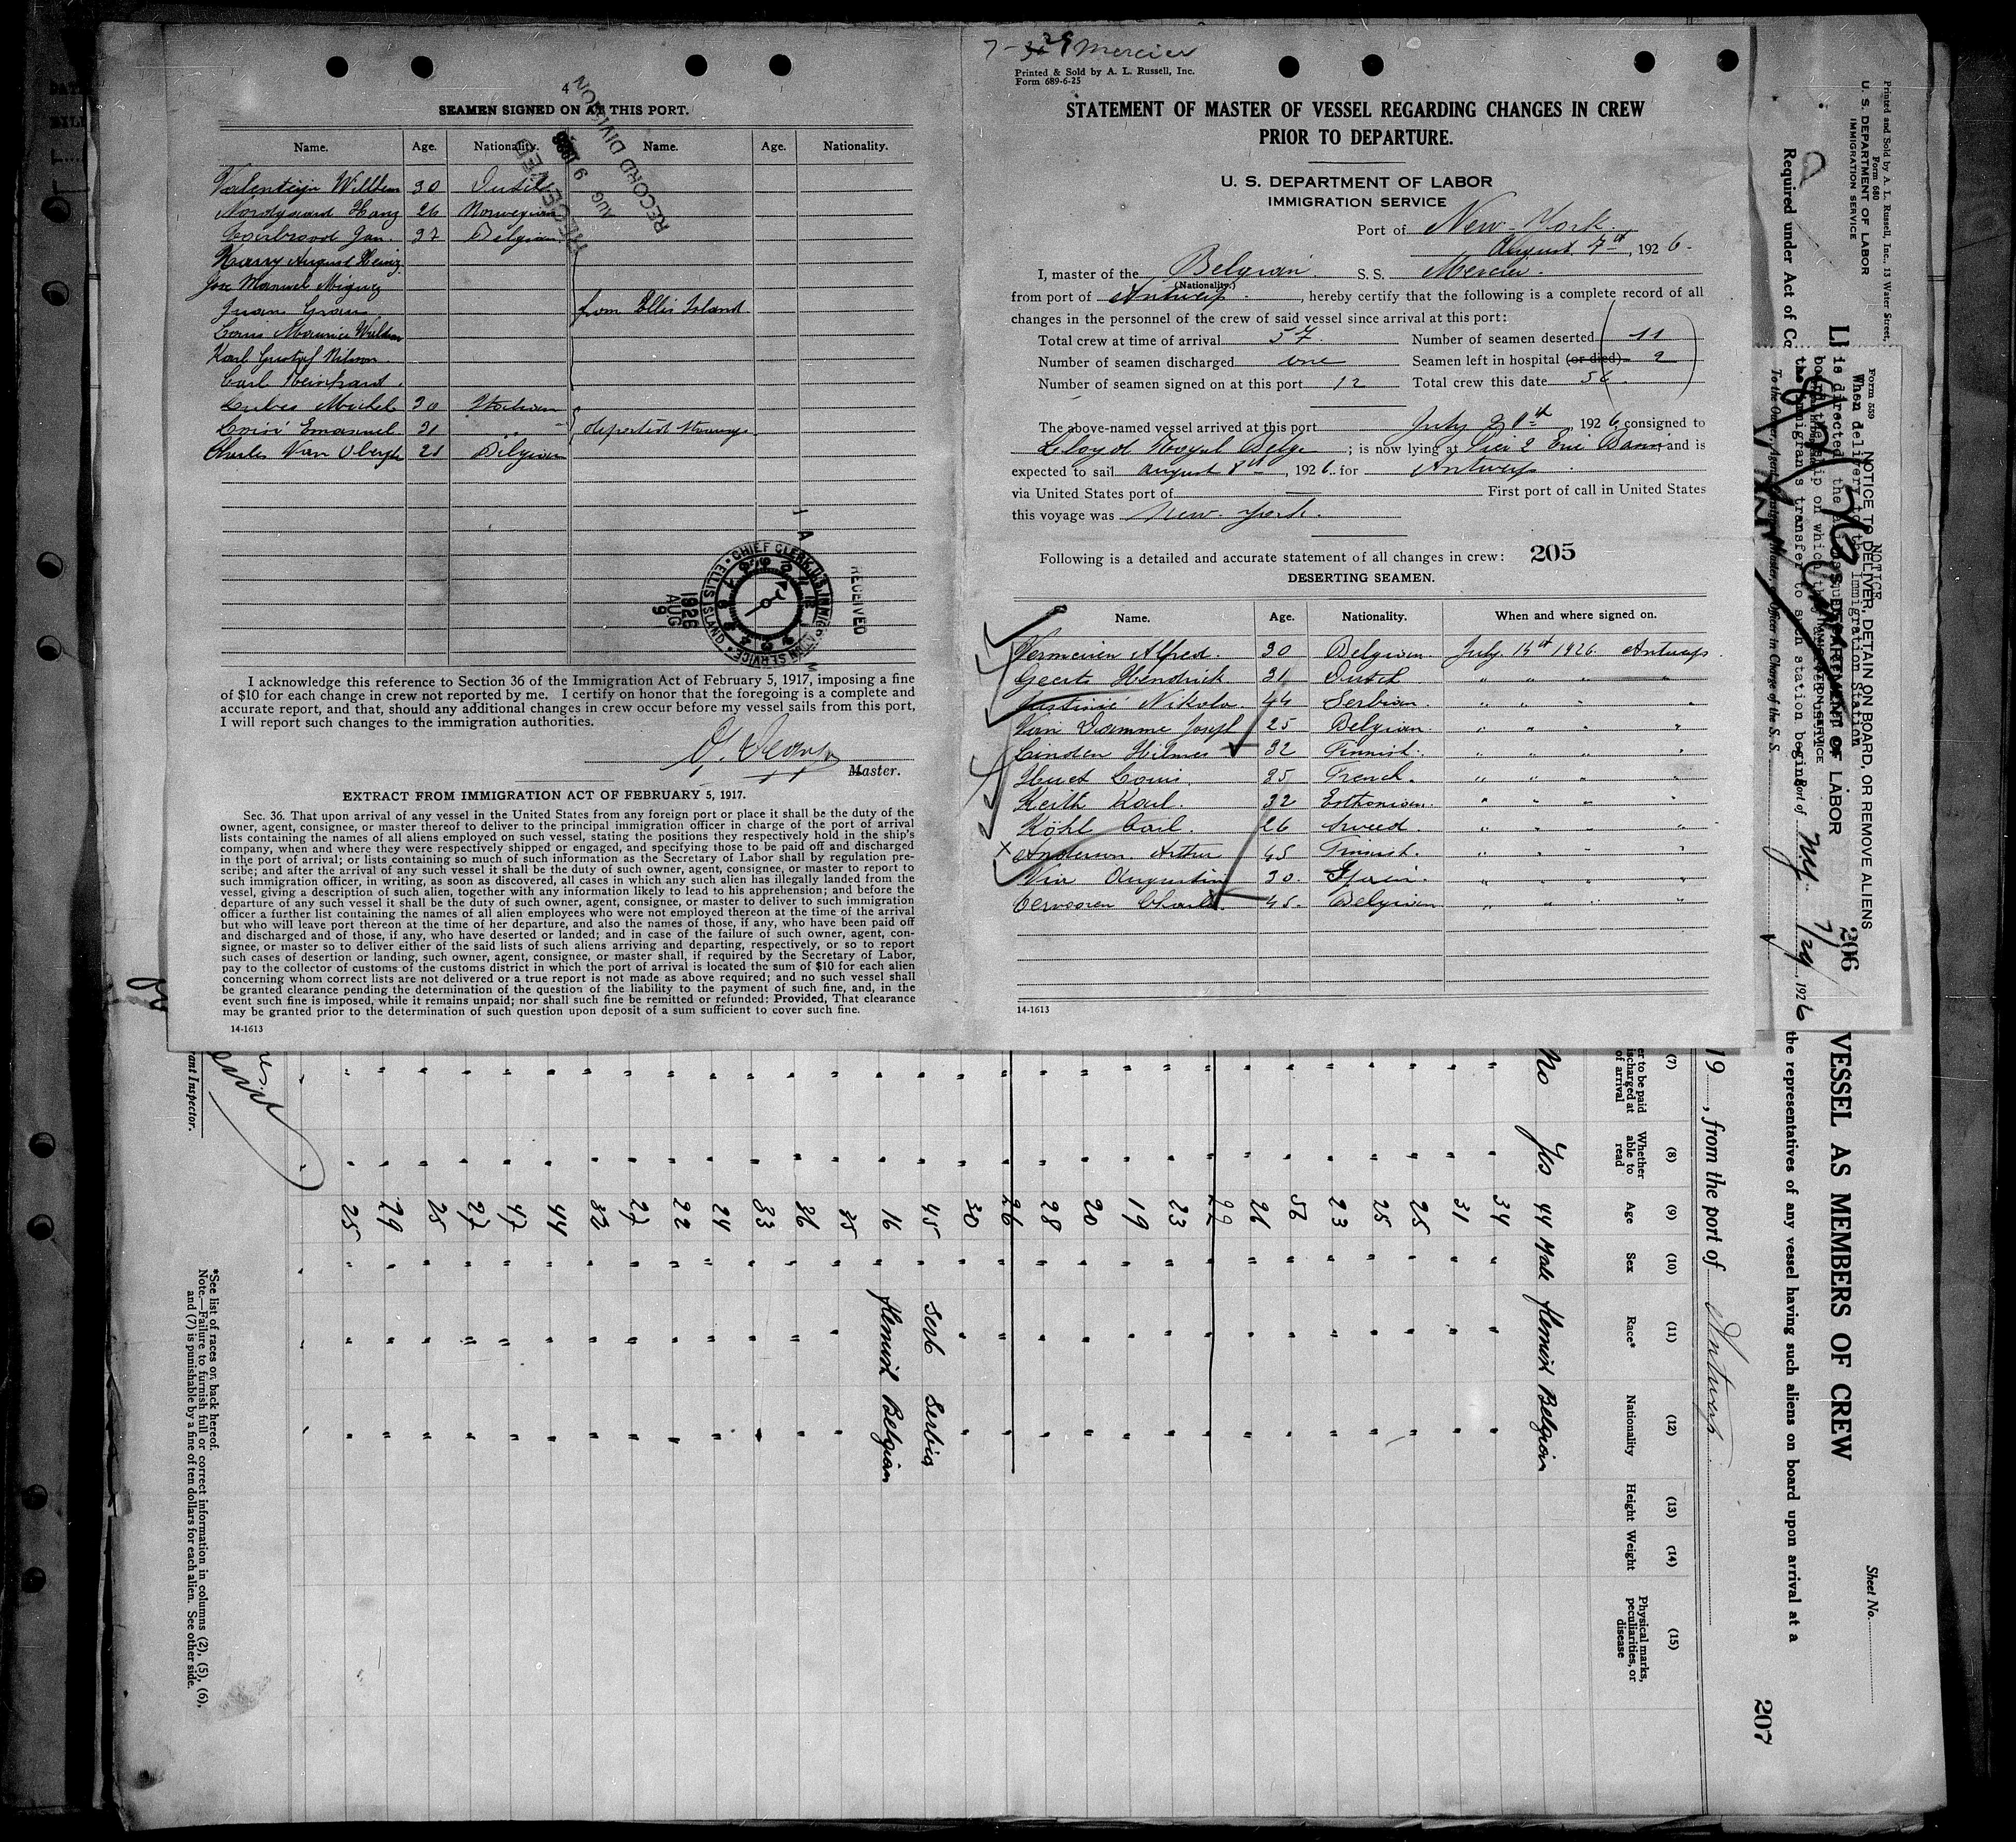 4
SEAMEN SIGNED ON AT THIS PORT.
Name. Age. Nationality. Name. Age. Nationality.
Valentijn Willem 30 Dutch
Nordgaard Hans 26 Norwegian
Jan. 37 Belgian
Harry August Heinz
Jose Manuel Miguez
Juan Grau
from Ellis Island
Louis Maurice
Karl Gustaf Nilson
Carl Reinhard.
Michel 30 Italian
Emanuel 31 " deported Stowaways
Charles Van 21 Belgian
RECEIVED
AUG 9 1926
RECORD DIVISION
CHIEF CLERK, U.S. IMMIGRATION SERVICE • ELLIS ISLAND •
1926 AUG 9
RECEIVED
I acknowledge this reference to Section 36 of the Immigration Act of February 5, 1917, imposing a fine
of $10 for each change in crew not reported by me. I certify on honor that the foregoing is a complete and
accurate report, and that, should any additional changes in crew occur before my vessel sails from this port,
I will report such changes to the immigration authorities.
Master.
EXTRACT FROM IMMIGRATION ACT OF FEBRUARY 5, 1917.
Sec. 36. That upon arrival of any vessel in the United States from any foreign port or place it shall be the duty of the
owner, agent, consignee, or master thereof to deliver to the principal immigration officer in charge of the port of arrival
lists containing the names of all aliens employed on such vessel, stating the positions they respectively hold in the ship's
company, when and where they were respectively shipped or engaged, and specifying those to be paid off and discharged
in the port of arrival; or lists containing so much of such information as the Secretary of Labor shall by regulation pre-
scribe; and after the arrival of any such vessel it shall be the duty of such owner, agent, consignee, or master to report to
such immigration officer, in writing, as soon as discovered, all cases in which any such alien has illegally landed from the
vessel, giving a description of such alien, together with any information likely to lead to his apprehension; and before the
departure of any such vessel it shall be the duty of such owner, agent, consignee, or master to deliver to such immigration
officer a further list containing the names of all alien employees who were not employed thereon at the time of the arrival
but who will leave port thereon at the time of her departure, and also the names of those, if any, who have been paid off
and discharged and of those, if any, who have deserted or landed; and in case of the failure of such owner, agent, con-
signee, or master so to deliver either of the said lists of such aliens arriving and departing, respectively, or so to report
such cases of desertion or landing, such owner, agent, consignee, or master shall, if required by the Secretary of Labor,
pay to the collector of customs of the customs district in which the port of arrival is located the sum of $10 for each alien
concerning whom correct lists are not delivered or a true report is not made as above required; and no such vessel shall
be granted clearance pending the determination of the question of the liability to the payment of such fine, and, in the
event such fine is imposed, while it remains unpaid; nor shall such fine be remitted or refunded: Provided, That clearance
may be granted prior to the determination of such question upon deposit of a sum sufficient to cover such fine.
14-1613
7-29 Mercier
Printed & Sold by A. L. Russell, Inc.
Form 689-6-25
STATEMENT OF MASTER OF VESSEL REGARDING CHANGES IN CREW
PRIOR TO DEPARTURE.
U. S. DEPARTMENT OF LABOR
IMMIGRATION SERVICE
Port of New-York
August 7th, 1926.
I, master of the Belgian S. S. Mercier.
(Nationality.)
from port of Antwerp, hereby certify that the following is a complete record of all
changes in the personnel of the crew of said vessel since arrival at this port:
Total crew at time of arrival 57. Number of seamen deserted 11
Number of seamen discharged one Seamen left in hospital (or died) 2
Number of seamen signed on at this port 12 Total crew this date 56
The above-named vessel arrived at this port July th, 1926 consigned to
Lloyd Royal Belge; is now lying at Pier 2 Erie Basin, and is
expected to sail august 8th, 1926. for Antwerp
via United States port of — First port of call in United States
this voyage was New-York.
Following is a detailed and accurate statement of all changes in crew: 205
DESERTING SEAMEN.
Name. Age. Nationality. When and where signed on.
Vermeiren Alfred. 30 Belgian. July 15th 1926 Antwerp.
Geerts Hendrick 31 Dutch " " " "
Justinic Nikola 44 Serbian. " " " "
Van Damme Joseph 25 Belgian. " " " "
Linden Hilmer 32 Finnish. " " " "
Huet Louis. 35 French. " " " "
Keith Karl. 32 Esthonian. " " " "
Köhl Carl. 26 Sweed. " " " "
x Anderson Arthur 45 Finnish. " " " "
Via Augustin 30. Spain " " " "
Vervooren Charles 45. Belgian " " " "
14-1613
Printed and Sold by A. L. Russell, Inc., 13 Water Street,
Form 680
U. S. DEPARTMENT OF LABOR
IMMIGRATION SERVICE
Required under Act of Co
Form 559
NOTICE
NOTICE TO DELIVER, DETAIN ON BOARD, OR REMOVE ALIENS
When delivery to the Immigration Station
is directed the
the immigrants transfer to such station begins
U. S. DEPARTMENT OF LABOR
IMMIGRATION SERVICE
Port of N.Y. 7/29 1926
To the Owner, Agent, Master, or Officer in Charge of the S. S.
206
VESSEL AS MEMBERS OF CREW
the representatives of any vessel having such aliens on board upon arrival at a
Sheet No.
207
19 , from the port of Antwerp
(7) (8) (9) (10) (11) (12) (13) (14) (15)
er to be paid
ischarged at
of arrival
Whether able to read
Age
Sex
Race*
Nationality
Height
Weight
Physical marks, peculiarities, or disease
No Yes 44 Male flemish Belgian
" " 34 " " "
" " 31 " " "
" " 25 " " "
" " 25 " " "
" " 23 " " "
" " 56 " " "
" " 26 " " "
" " 22 " " "
" " 23 " " "
" " 19 " " "
" " 20 " " "
" " 28 " " "
" " 26 " " "
" " 30 " " "
" " 45 " Serb Serbia
" " 16 " flemish Belgian
" " 35 " " "
" " 36 " " "
" " 33 " " "
" " 24 " " "
" " 22 " " "
" " 27 " " "
" " 32 " " "
" " 44 " " "
" " 47 " " "
" " 27 " " "
" " 25 " " "
" " 29 " " "
" " 25 " " "
rant Inspector.
*See list of races on back hereof.
Note.—Failure to furnish full or correct information in columns (2), (5), (6),
and (7) is punishable by a fine of ten dollars for each alien. See other side.